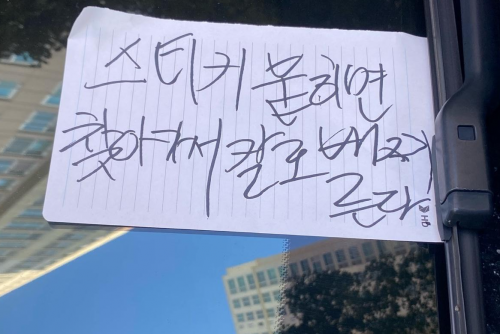 스티커 붙히면
찾아가서 칼로
른다